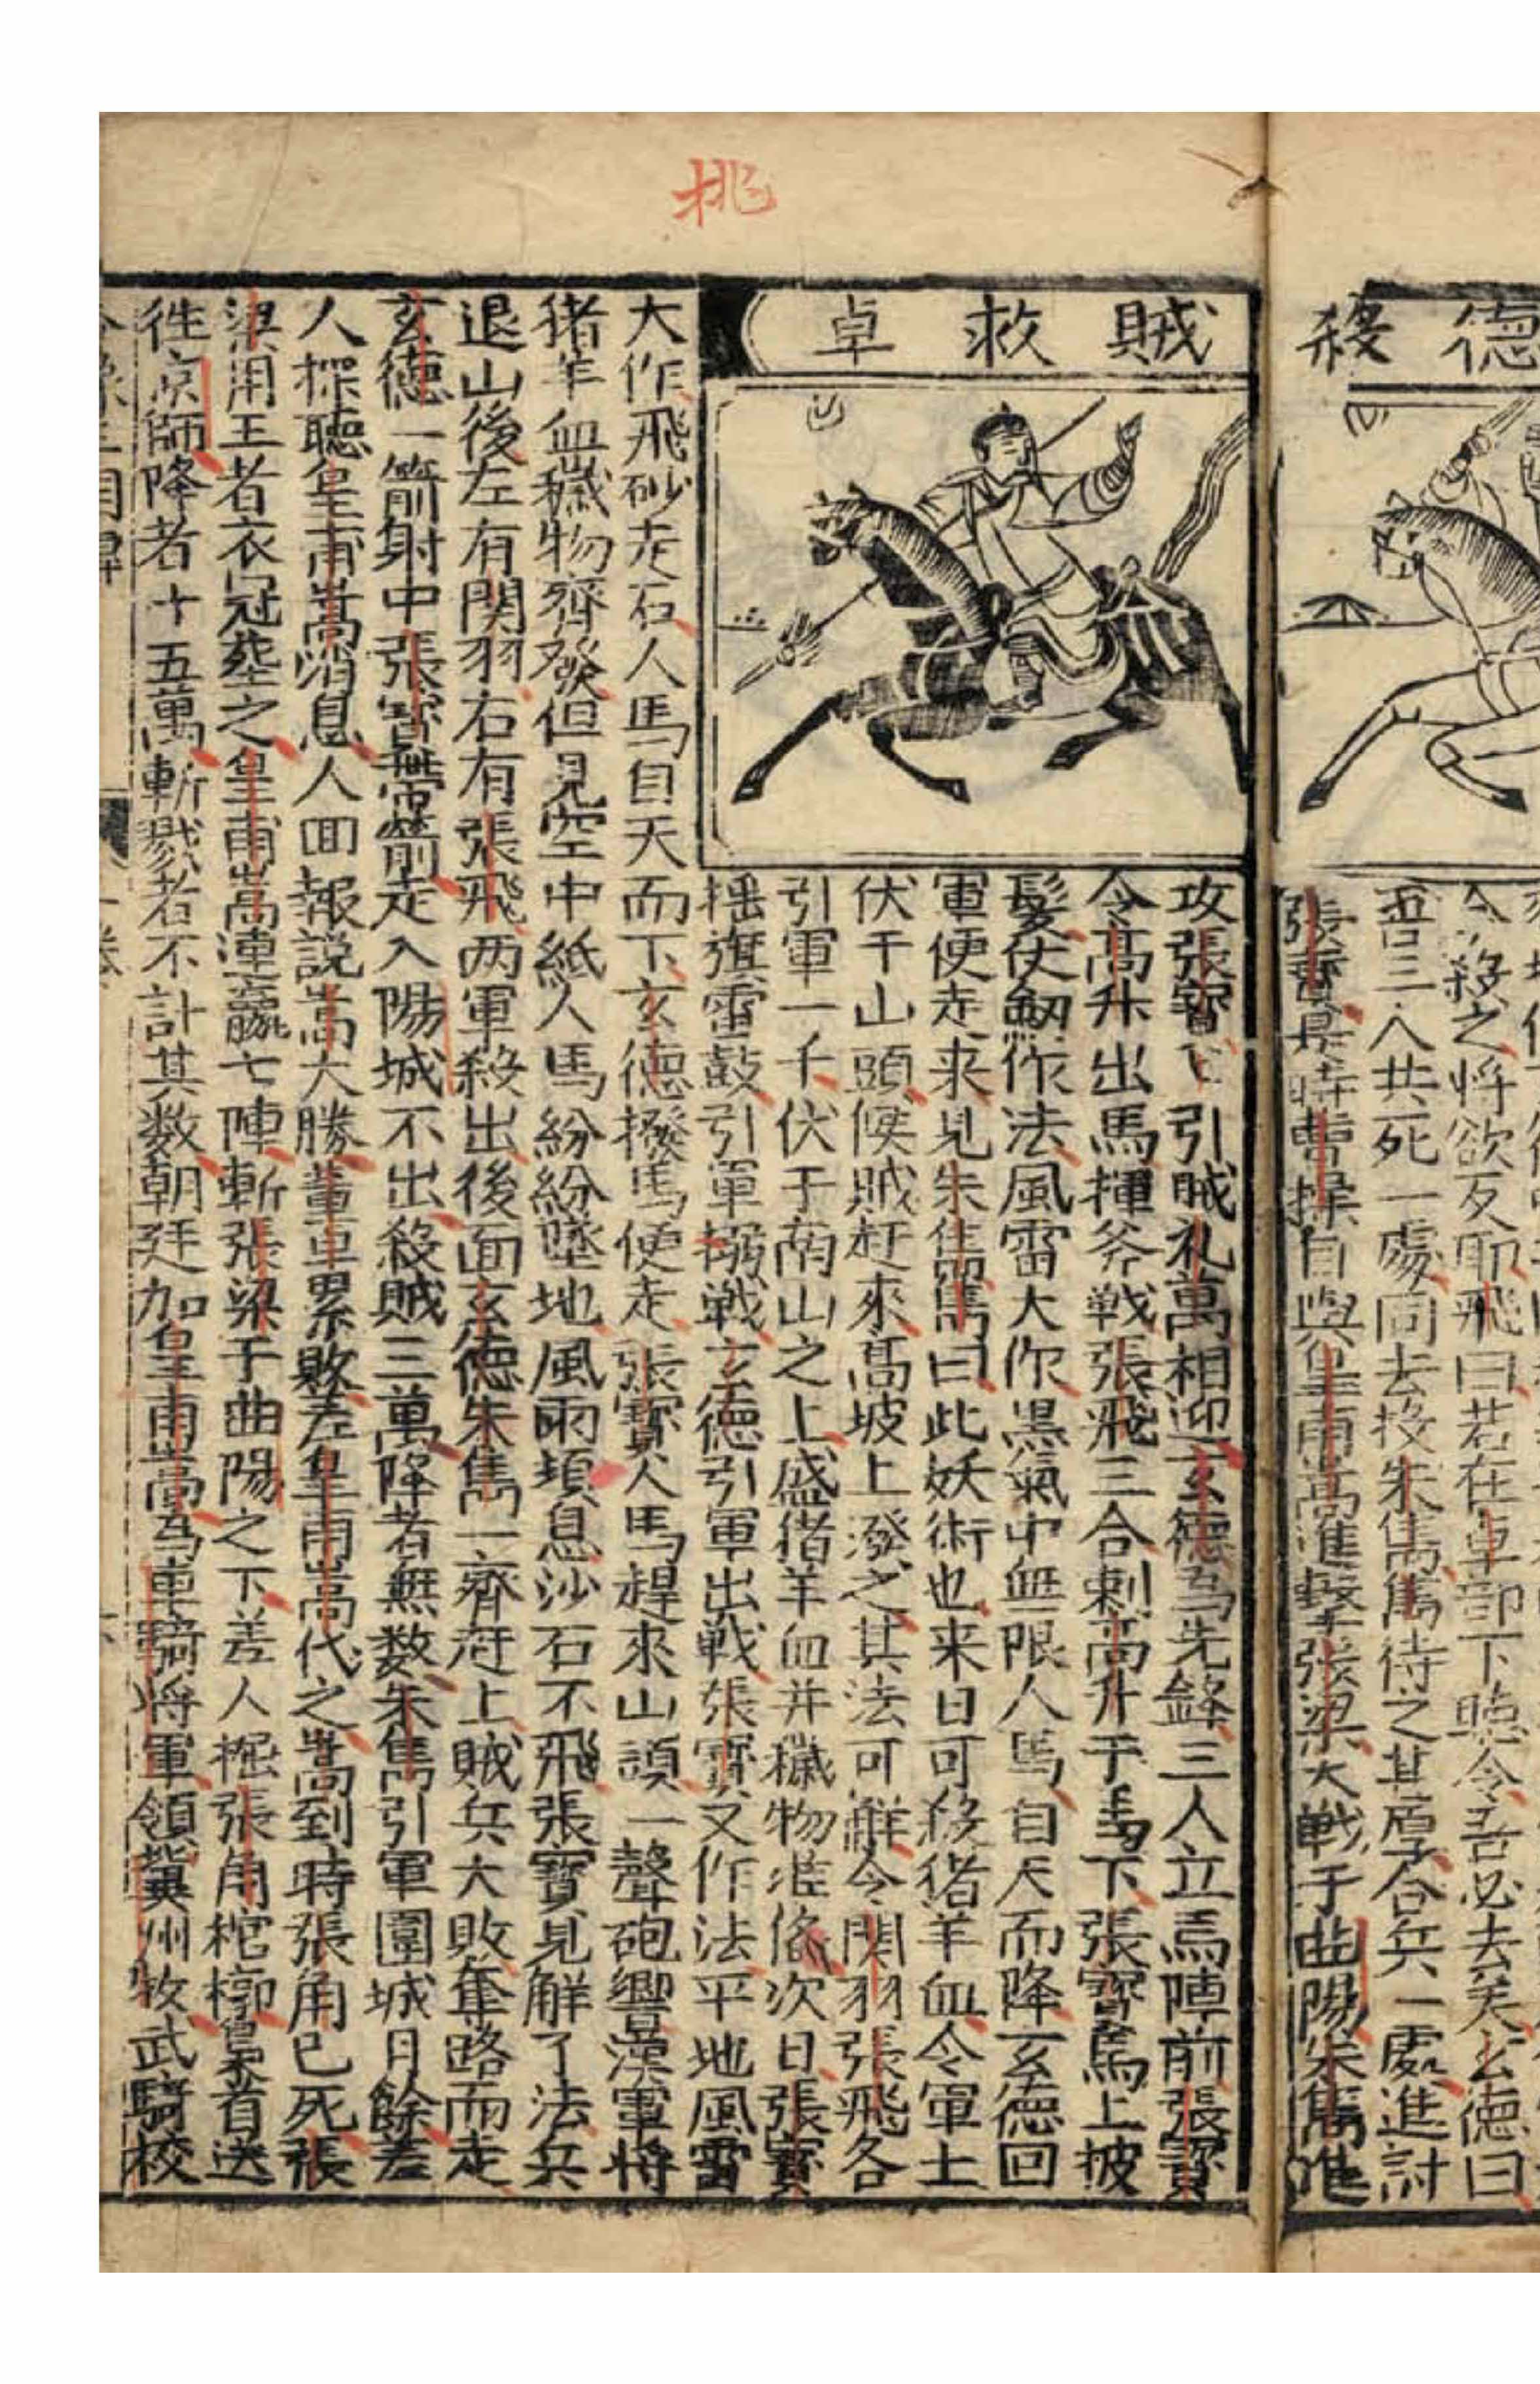 挑
德殺
賊救卓
今殺之将欲反耶飛曰若在卓部下聴令吾必去矣玄德曰
吾三人共死一處同去投朱雋雋待之甚厚合兵一處進討
張寳是時曹操自與皇甫嵩進擊張梁大戦于曲陽朱雋進
攻張寳寳引賊八萬相迎玄德為先鋒三人立馬陣前張寳
令高升出馬揮斧戦張飛三合刺高升于馬下張寳馬上披
髮仗劒作法風雷大作黒氣中無限人馬自天而降玄德回
軍便走来見朱雋雋曰此妖術也来日可殺猪羊血令軍士
伏于山頭候賊赶來髙坡上潑之其法可觧令関羽張飛各
引軍一千伏于南山之上盛猪羊血并穢物准俻次日張寳
揺旗雷鼓引軍搦戦玄德引軍出戦張寳又作法平地風雷
大作飛砂走石人馬自天而下玄德撥馬便走張寳人馬趕來山頭一聲砲響漢軍將
猪羊血穢物齊發但見空中紙人馬紛紛墜地風雨頓息沙石不飛張寳見解了法兵
退山後左有関羽右有張飛两軍殺出後面玄德朱雋一齊赶上賊兵大敗奪路而走
玄德一箭射中張寳帶箭走入陽城不出殺賊三萬降者無数朱雋引軍圍城月餘差
人探聴皇甫嵩消息人回報説嵩大勝董卓累敗差皇甫嵩代之嵩到時張角已死張
梁用王者衣冠塟之皇甫嵩連贏七陣斬張梁于曲陽之下差人掘張角棺槨梟首送
徃京師降者十五萬斬戮者不計其数朝廷加皇甫嵩為車騎将軍領冀州牧武騎校